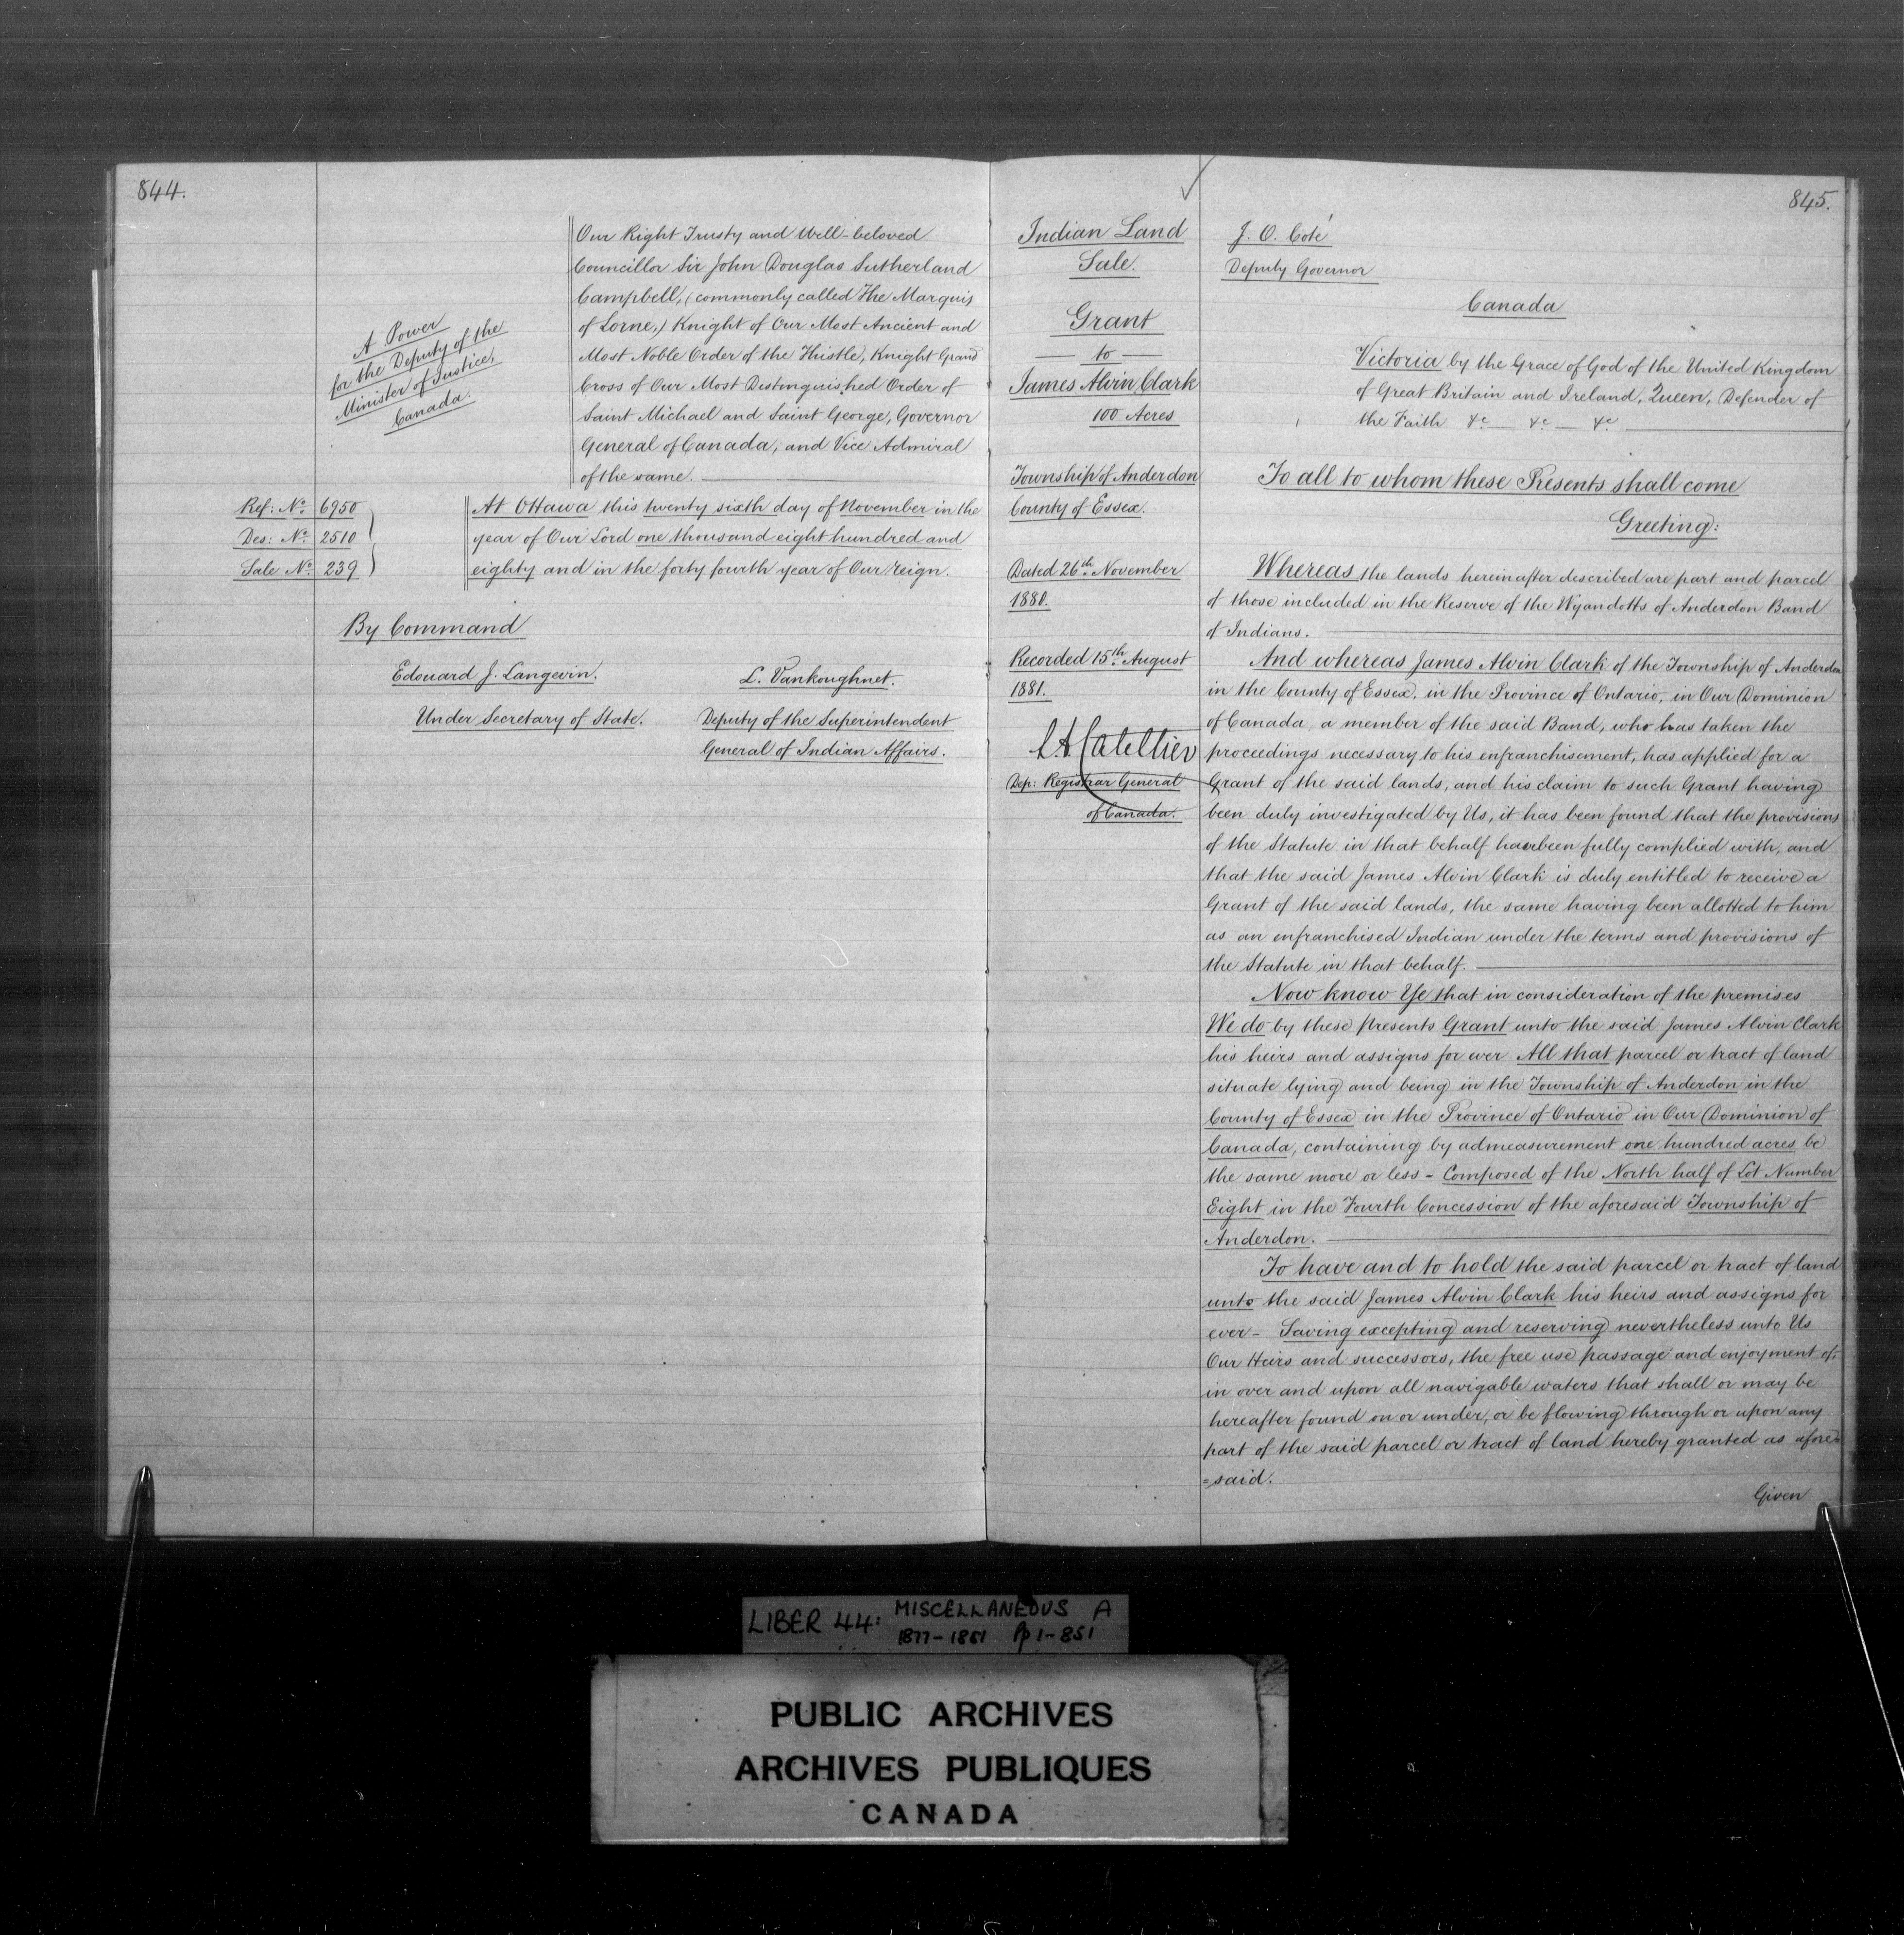 844.
Our Right Trusty and Well-beloved
Councillor Sir John Douglas Sutherland
Campbell, (commonly called The Marquis
of Lorne,) Knight of Our Most Ancient and
Most Noble Order of the Thistle, Knight Grand
Cross of Our Most Distinguished Order of
Saint Michael and Saint George, Governor
General of Canada, and Vice Admiral
of the same.
A Power
for the Deputy of the
Minister of Justice,
Canada.
Ref: No. 6950
Des: No. 2510
Sale No. 239
At Ottawa this twenty sixth day of November in the
year of Our Lord one thousand eight hundred and
eighty and in the forty fourth year of Our reign.
By Command
Edouard J. Langevin.
Under Secretary of State.
L. Vankoughnet.
Deputy of the Superintendent
General of Indian Affairs.
845.
Indian Land
Sale.
Grant
to
James Alvin Clark
100 Acres
Township of Anderdon
County of Essex.
Dated 26th November
1880.
Recorded 15th August
1881.
L. A. Catellier
Dep: Registrar General
of Canada.
J. O. Coté
Deputy Governor
Canada
Victoria by the Grace of God of the United Kingdom
of Great Britain and Ireland, Queen, Defender of
the Faith &c — &c — &c
To all to whom these Presents shall come
Greeting:
Whereas the lands hereinafter described are part and parcel
of those included in the Reserve of the Wyandotts of Anderdon Band
of Indians.
And whereas James Alvin Clark of the Township of Anderdon
in the County of Essex, in the Province of Ontario, in Our Dominion
of Canada, a member of the said Band, who has taken the
proceedings necessary to his enfranchisement, has applied for a
Grant of the said lands, and his claim to such Grant having
been duly investigated by Us, it has been found that the provisions
of the Statute in that behalf have been fully complied with, and
that the said James Alvin Clark is duly entitled to receive a
Grant of the said lands, the same having been allotted to him
as an enfranchised Indian under the terms and provisions of
the Statute in that behalf.
Now know Ye that in consideration of the premises
We do by these presents Grant unto the said James Alvin Clark
his heirs and assigns for ever All that parcel or tract of land
situate lying and being in the Township of Anderdon in the
County of Essex in the Province of Ontario in Our Dominion of
Canada, containing by admeasurement one hundred acres be
the same more or less - Composed of the North half of Lot Number
Eight in the Fourth Concession of the aforesaid Township of
Anderdon.
To have and to hold the said parcel or tract of land
unto the said James Alvin Clark his heirs and assigns for
ever - Saving excepting and reserving nevertheless unto Us
Our Heirs and successors, the free use passage and enjoyment of,
in over and upon all navigable waters that shall or may be
hereafter found on or under, or be flowing through or upon any
part of the said parcel or tract of land hereby granted as afore=
=said.
Given
LIBER 44: MISCELLANEOUS A
1877-1881 Pp 1-851
PUBLIC ARCHIVES
ARCHIVES PUBLIQUES
CANADA